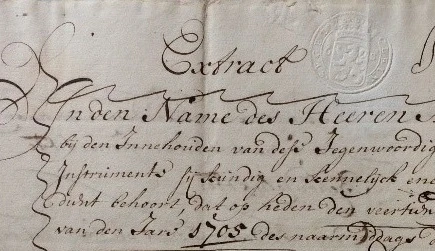 Extract
In den Name des Heeren
bij den Innehouden van dese Jegenwoordig
Instrumente sij kundig en kennelijck ene
dient behoort, dat op heden den veertien
van den Jare 1705 des naarmiddags